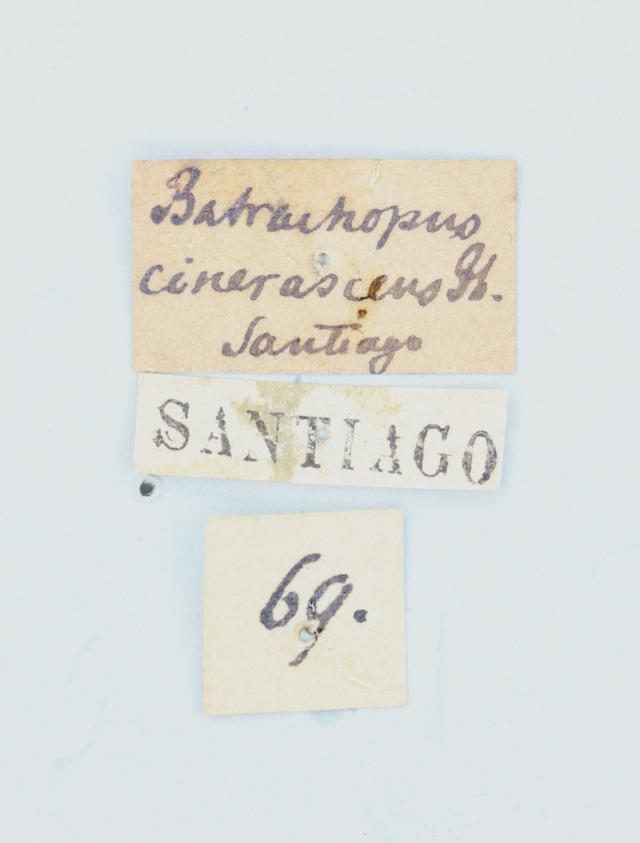 Batrachopus
cinerascens Ph.
Santiago
SANTIAGO
69.